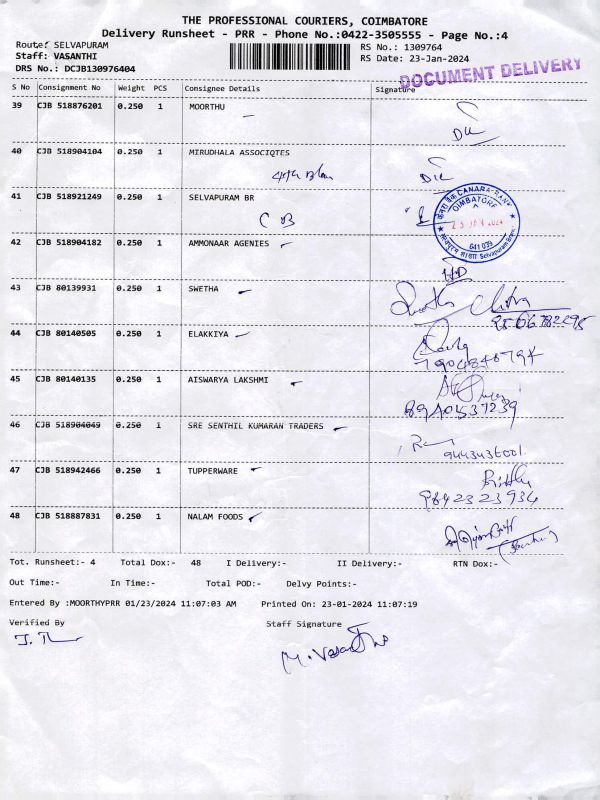 THE PROFESSIONAL COURIERS, COIMBATORE
Delivery Runsheet - PRR - Phone No.:0422-3505555 - Page No.:4
Route: SELVAPURAM
RS No.: 1309764
Staff: VASANTHI
RS Date: 23-Jan-2024
DRS No.: DCJB130976404
DOCUMENT DELIVERY
S No Consignment No Weight PCS Consignee Details Signature
39 CJB 518876201 0.250 1 MOORTHU
40 CJB 518904104 0.250 1 MIRUDHALA ASSOCIQTES
41 CJB 518921249 0.250 1 SELVAPURAM BR
CB
CANARA BANK
COIMBATORE
23 JAN 2024
641 039
Selvapuram Branch
42 CJB 518904182 0.250 1 AMMONAAR AGENIES
43 CJB 80139931 0.250 1 SWETHA
44 CJB 80140505 0.250 1 ELAKKIYA
45 CJB 80140135 0.250 1 AISWARYA LAKSHMI
8940537239
46 CJB 518904049 0.250 1 SRE SENTHIL KUMARAN TRADERS
9443436001
47 CJB 518942466 0.250 1 TUPPERWARE
9842323934
48 CJB 518887831 0.250 1 NALAM FOODS
Tot. Runsheet:- 4 Total Dox:- 48 I Delivery:- II Delivery:- RTN Dox:-
Out Time:- In Time:- Total POD:- Delvy Points:-
Entered By :MOORTHYPRR 01/23/2024 11:07:03 AM Printed On: 23-01-2024 11:07:19
Verified By Staff Signature
M. Vasanthi